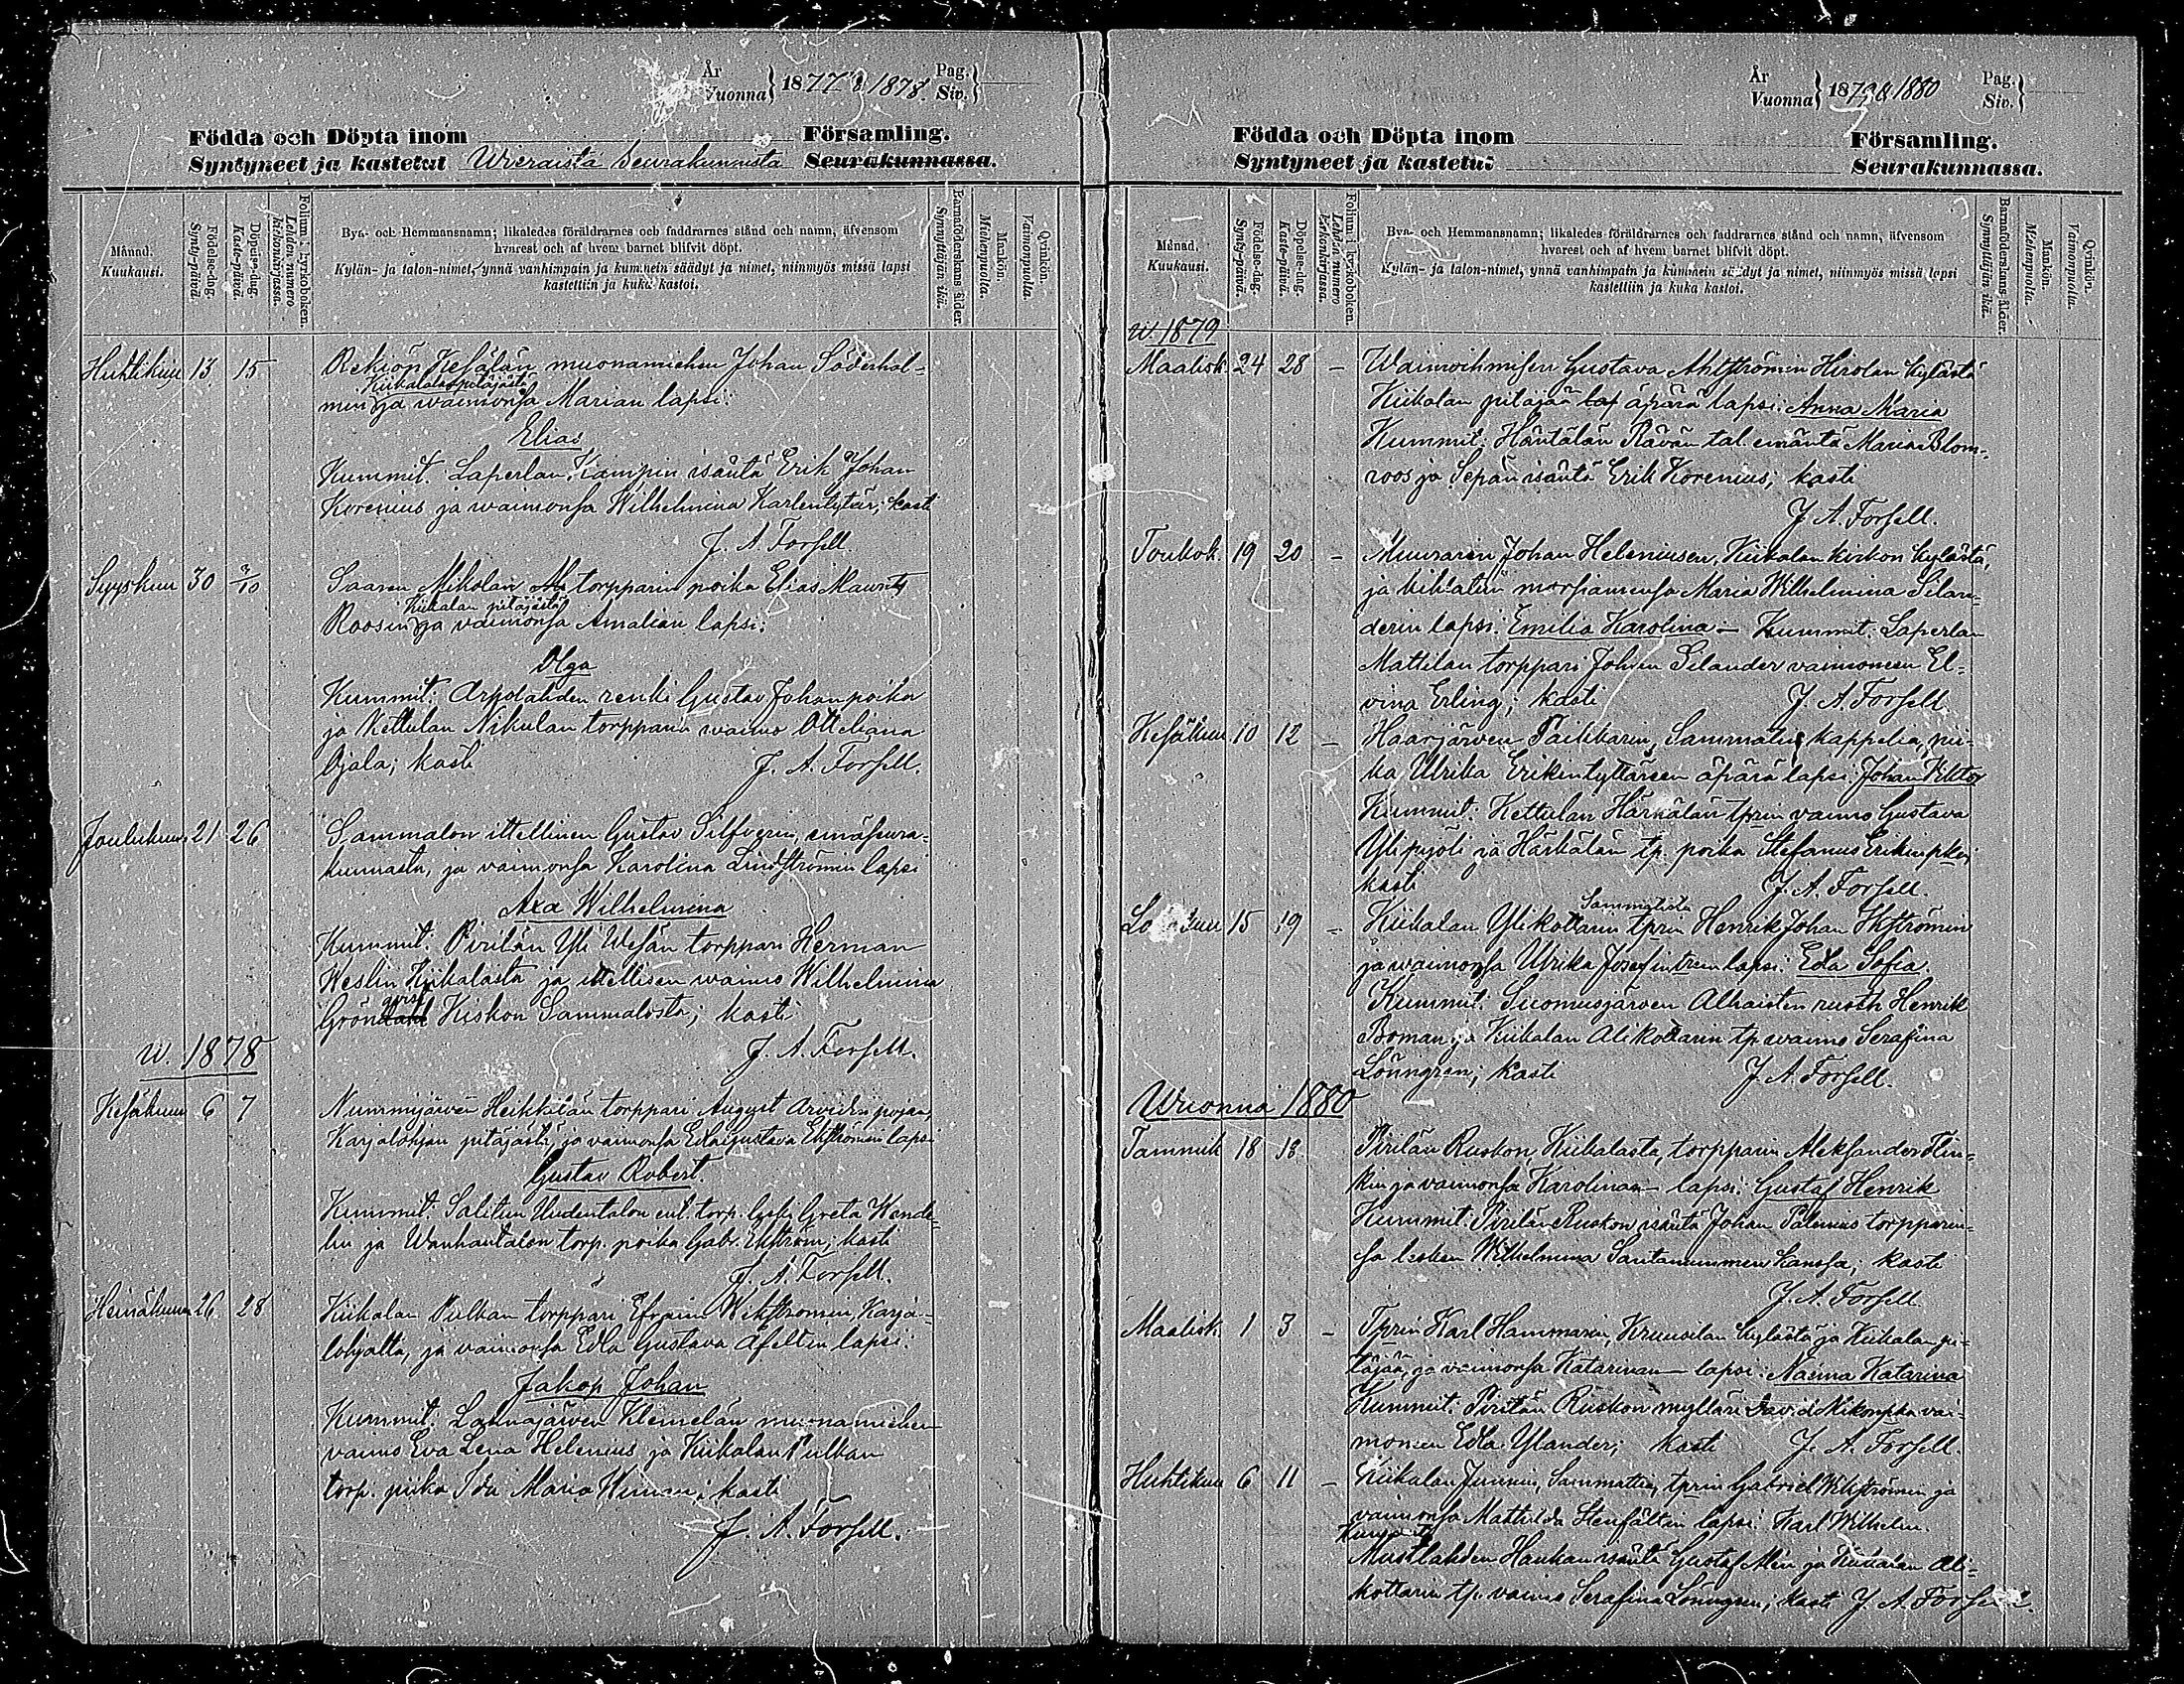 År
Vuonna } 1877 & 1878. Pag.
Siv. }
Födda och Döpta inom Församling.
Syntyneet ja kastetut Wieraista Seurakunnista Seurakunnassa.
Månad.
Kuukausi.
Födelse-dag.
Synty-päivä.
Döpelse-dag.
Kaste-päivä.
Folium i kyrkoboken.
Lehden numero
kirkonkirjassa.
Bya- och Hemmansnamn; likaledes föräldrarnes och faddrarnes stånd och namn, äfvensom
hvarest och af hvem barnet blifvit döpt.
Kylän- ja talon-nimet, ynnä vanhimpain ja kummein säädyt ja nimet, niinmyös missä lapsi
kastettiin ja kuka kastoi.
Barnaföderskans ålder.
Synnyttäjän ikä.
Mankön.
Miehenpuolta.
Qvinkön.
Vaimonpuolta.
Huhtikuu 13 15 Rekiön Kesälän muonamiehen Johan Söderhol-
Kiikalan pitäjästä
min ja waimonsa Marian lapsi:
Elias
Kummit. Laperlan Kampin isäntä Erik Johan
Korenius ja waimonsa Wilhelmina Karlentytär; kasti
J. A. Forsell.
Syyskuu 30 3/10 Saaren Mikolan torpparin poika Elias Maurits
Kiikalan pitäjästä
Roosin ja vaimonsa Amalian lapsi:
Olga
Kummit: Arpolahden renki Gustav Johanpoika
ja Kettulan Nikulan torpparin waimo Otteliana
Ojala; kasti J. A. Forsell.
Joulukuu 21 26 Sammalon ittellinen Gustav Silfverin, emäseura-
kunnasta, ja vaimonsa Karolina Lindströmin lapsi
Axa Wilhelmina
Kummit: Pirilän Yli Uesän torppari Herman
Weslin Kiikalasta ja ittellisen waimo Wilhelmina
Grön Kiskon Sammalosta; kasti
J. A. Forsell.
w. 1878
Kesäkuu 6 7 Nummijärven Heikkilän torppari August Arvidin pojan,
Karjalohjan pitäjästä, ja vaimonsa Edla Gustava Ekströmin lapsi
Gustav Robert.
Kummit: Salittun Uudentalon ent. torp. leski Greta Wande-
lin ja Wanhantalon torp. poika Gabr. Ekström; kasti
J. A. Forsell.
Heinäkuu 26 28 Kiikalan Pulkan torppari Efraim Wikströmin, Karja-
lohjalta, ja vaimonsa Edla Gustava Afeltin lapsi:
Jakop Johan
Kummit: Lahnajärven Klemelän muonamiehen
vaimo Eva Lena Helenius ja Kiikalan Pulkan
torp. piika Ida Maria; kasti
J. A. Forsell.
År
Vuonna } 1879 & 1880 Pag.
Siv. }
Födda och Döpta inom Församling.
Syntyneet ja kastetut Seurakunnassa.
Månad.
Kuukausi.
Födelse-dag.
Synty-päivä.
Döpelse-dag.
Kaste-päivä.
Folium i kyrkoboken.
Lehden numero
kirkonkirjassa.
Bya- och Hemmansnamn; likaledes föräldrarnes och faddrarnes stånd och namn, äfvensom
hvarest och af hvem barnet blifvit döpt.
Kylän- ja talon-nimet, ynnä vanhimpain ja kummein säädyt ja nimet, niinmyös missä lapsi
kastettiin ja kuka kastoi.
Barnaföderskans ålder.
Synnyttäjän ikä.
Mankön.
Miehenpuolta.
Qvinkön.
Vaimonpuolta.
w. 1879
Maalisk. 24 28 – Waimoihmisen Gustava Ahlströmin Hirolan kylästä
Kiikalan pitäjää äpärä lapsi: Anna Maria
Kummit: Häntälän Rävän tal. emäntä Maria Blom-
roos ja Sepän isäntä Erik Korenius; kasti
J. A. Forsell.
Toukok. 19 20 – Muurarin Johan Heleniusen, Kiikalan kirkon kylästä,
ja kihlatun morsiamensa Maria Wilhelmina Silan-
derin lapsi: Emilia Karolina – Kummit: Laperlan
Mattilan torppari Johan Silander vaimoneen El-
vina Erling; kasti J. A. Forsell.
Kesäkuu 10 12 – Haarjärven Taikkarin, Sammatin kappelia, pii-
ka Ulrika Erikintyttäreen äpärä lapsi: Johan Viktor
Kummit: Kettulan Härkälän tprin vaimo Gustava
Ylipyöli ja Härkälän tp. poika Stefanus Erikinpka;
kasti J. A. Forsell.
15 19 – Sammatista
Kiikalan Ylikottarin tprin Henrik Johan Ekströmin
ja waimonsa Ulrika Josefintrein lapsi: Edla Sofia.
Kummit: Suomusjärven Alhaisten rusth. Henrik
Boman ja Kiikalan Alikottarin tp. waimo Serafina
Lönngren; kasti J. A. Forsell.
Wuonna 1880
Tammik 18 18. Pirilän Ruskon Kiikalasta, torpparin Aleksander Flin-
kin ja vaimonsa Karolinan – lapsi: Gustaf Henrik
Kummit: Pirilän Ruskon isäntä Johan Palenius torpparin-
sa lesken Wilhelmina Santanummen kanssa; kasti
J. A. Forsell.
Maalisk. 1 3 – Tprin Karl Hammarin, Kruusilan kylästä ja Kiikalan pi-
täjää, ja vaimonsa Katarinan – lapsi: Naima Katarina
Kummit: Pirilän Ruskon mylläri David Mikonpka vai-
monsa Edla Ylander; kasti J. A. Forsell.
Huhtikuu 6 11 – Kiikalan Junnin, Sammattia, tprin Gabriel Wikströmin ja
vaimonsa Mathilda Stenfältin lapsi: Karl Wilhelm.
Kummit
Mustlahden Haukan isäntä Gustaf Alin ja Kiikalan Ali-
kottarin tp. vaimo Serafina Lönngren; kasti J. A. Forsell.